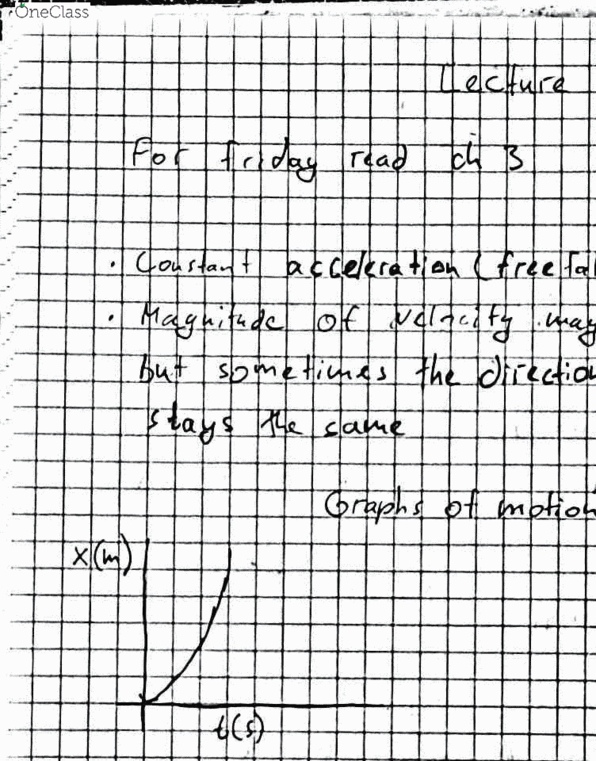 OneClass
Lecture
For friday read ch 3
· Constant acceleration (free fal
· Magnitude of velocity may
but sometimes the direction
stays the same
Graphs of motion
x(m)
t(s)